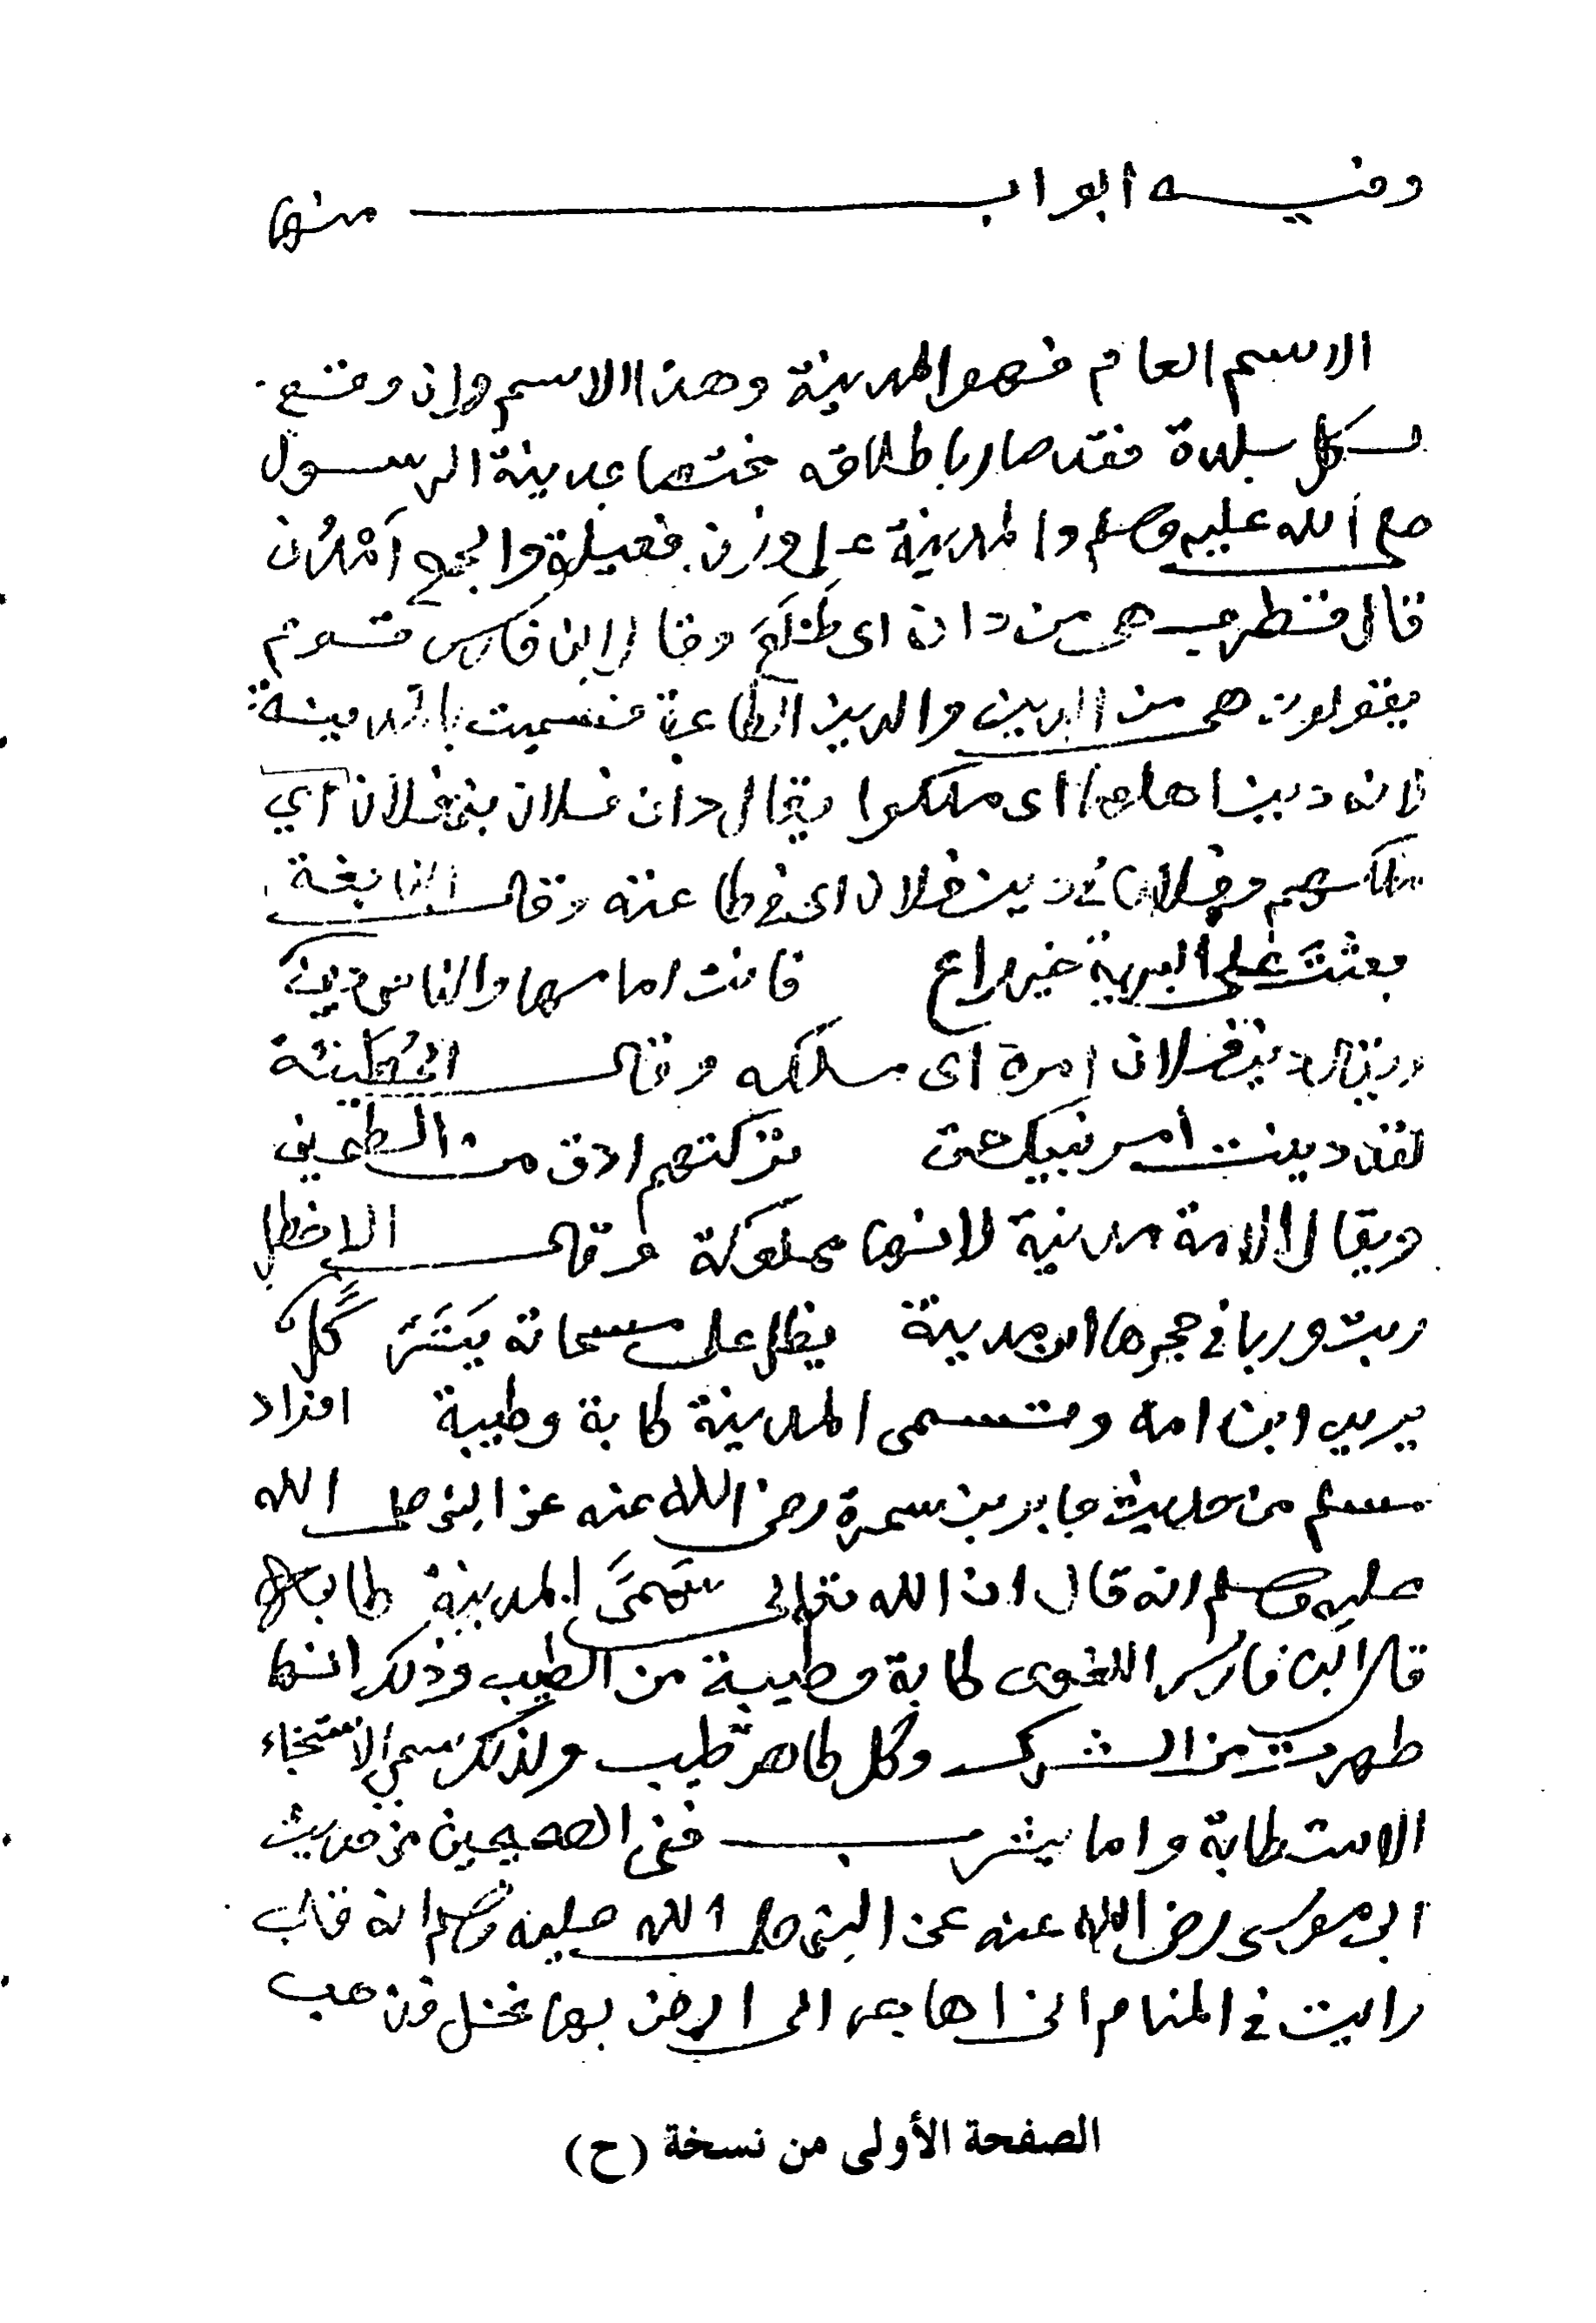 وفيه ابواب منها
الاسم العام فهو المدينة وهذا الاسم وان وقع
لكل بلدة فقد صار باطلاقه مختصا بمدينة الرسول
صلى الله عليه وسلم والمدينة على وزن فعيلة والجمع
قال قطرب هي من دان اى وقال ابن فارس قوم
يقولون هى من الدين والدين الطاعة فسميت بالمدينة
لانه دين اهلها اى ملكوا يقال دان فلان بنى فلان اي
ملكهم وفلان فى دين فلان اى فى طاعته وقال النابغة
بعثت على البرية خير راع فانت امامها والناس دين
ويقال دين فلان امره اى ملكه وقال الحطيئة
لقد دينت امر بنيك حتى تركتهم ادق من الطحين
ويقال الامة مدينة لانها مملوكة وقال الاخطل
ربت وربا في حجرها ابن مدينة يظل على مسحاته
يريد ابن امه وتسمى المدينة طابة وطيبة افراد
مسلم من حديث جابر بن سمرة رضى الله عنه عن النبى صلى الله
عليه وسلم انه قال ان الله تعالى سمى المدينة طابه
قال ابن فارس اللغوى طابة وطيبة من الطيب وذلك انها
طهرت من الشرك وكل طاهر طيب ولذلك سمي الاستنجاء
الاستطابة واما يثرب ففى الصحيحين من حديث
ابى موسى رضى الله عنه عن النبى صلى الله عليه وسلم انه قال
رايت في المنام انى اهاجر الى ارض بها نخل فذهب
الصفحة الأولى من نسخة (ح)